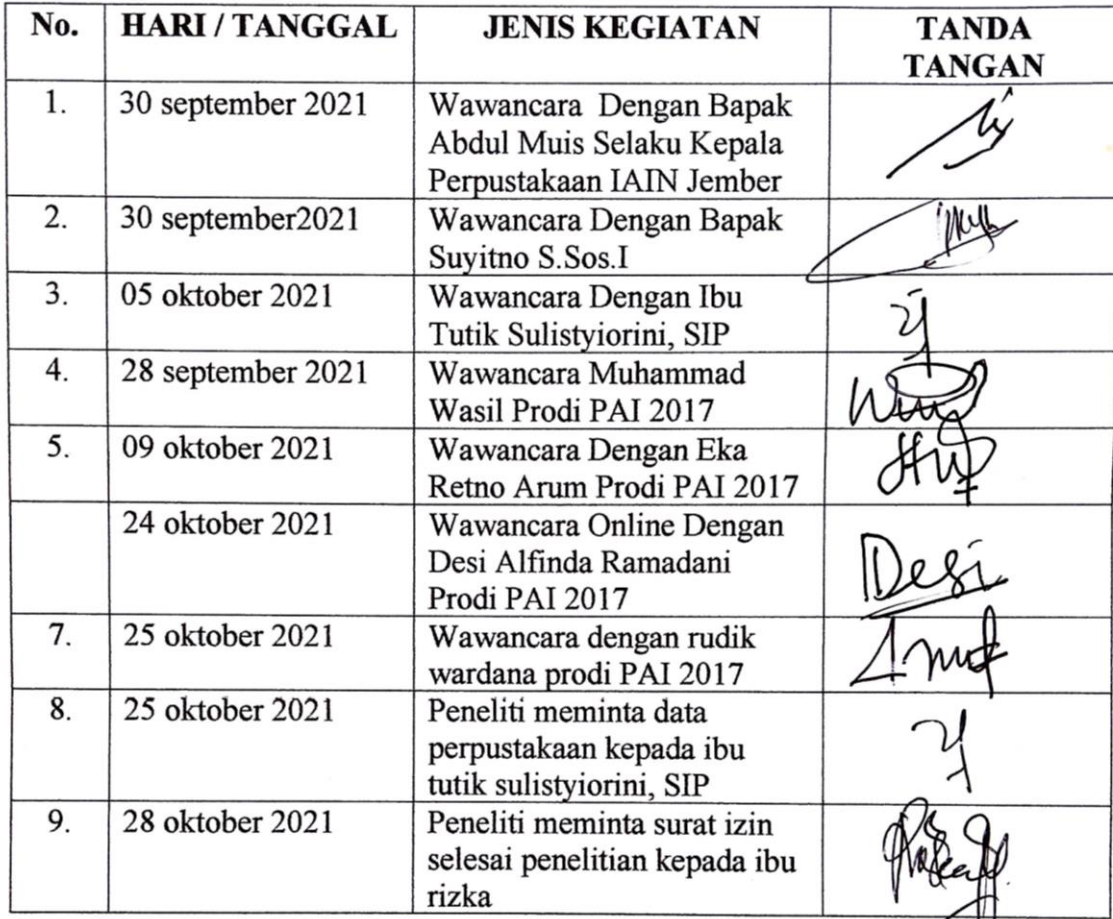 No. HARI / TANGGAL JENIS KEGIATAN TANDA
TANGAN
1. 30 september 2021 Wawancara Dengan Bapak
Abdul Muis Selaku Kepala
Perpustakaan IAIN Jember
2. 30 september2021 Wawancara Dengan Bapak
Suyitno S.Sos.I
3. 05 oktober 2021 Wawancara Dengan Ibu
Tutik Sulistyiorini, SIP
4. 28 september 2021 Wawancara Muhammad
Wasil Prodi PAI 2017
5. 09 oktober 2021 Wawancara Dengan Eka
Retno Arum Prodi PAI 2017
24 oktober 2021 Wawancara Online Dengan
Desi Alfinda Ramadani
Prodi PAI 2017
Desi
7. 25 oktober 2021 Wawancara dengan rudik
wardana prodi PAI 2017
8. 25 oktober 2021 Peneliti meminta data
perpustakaan kepada ibu
tutik sulistyiorini, SIP
9. 28 oktober 2021 Peneliti meminta surat izin
selesai penelitian kepada ibu
rizka